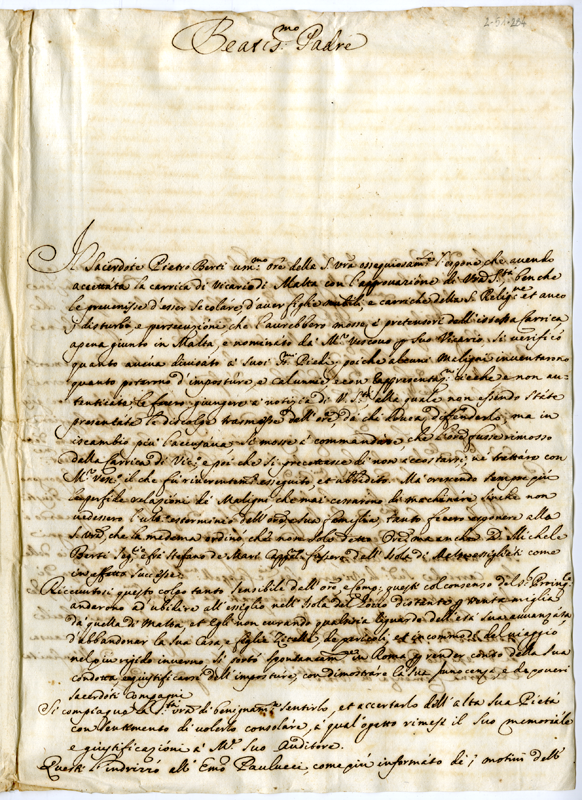 2-51-264
Beatis.mo Padre
Il Sacerdote Pietro Berti um.mo ore della S. vra ossequiosam.te l'espone che avendo
accettata la carrica di Vicario di Malta con l'approvazione di Vrā S.tà, benche
le prevenisse d'esser secolare d'aver figlie nubili, e carriche della S. Relig.ne et anco
i disturbi e persecuzione che l'avrebbero mosso i pretensori dell'istessa carrica
apena giunto in Malta, e nominato da M.r Vescovo p suo Vicario. Si verificò
quanto aveva divisato a' Suoi S.mi Piedi, poiche alcuni Maligni inventarono
quanto poterno d'imposture, e calunnie, e con rappresentaz.ni cieche e non au-
tenticate le fecero giungere a' notizia di V. S.tà alla quale non essendo state
presentate le discolpe trasmesse dell'ore, da chi doveva difenderlo, ma in
iscambio più l'accusava si mosse a' commandare che l'ore fusse rimosso
della carrica di Vic.o e poi che si precettasse di non accostarsi, ne trattare con
M.r Vesc.o il che fù riverentem.te esseguito et obbedito. Ma crescendo sempre più
la perfida relazione de' Maligni che mai cessarono di machinare finche non
vedessero l'ultō esterminio dell'ore e sua famiglia, tanto fecero esponere alla
S. vrā, che la medema ordinò che non solo detto ore ma anche D. Michele
Berti Seg.rio e frà Stefano de Mari Capp.no fussero dell'Isola di Malta essigliati come
in effetto successe.
Ricevutosi questo colpo tanto sensibile dell'ore e comp.i questi col consenso del S.r Pro Inq.re
anderono ad ubilire all'essiglio nell'Isola del Gozzo distante p venti miglia
da quella di Malta, et Egli non curando qualsisia riguardo dell'età sua avvanzata
d'abbandonar la sua Casa, e figlie Zitelle, de pericoli, et incommodi del viaggio
nel più rigido inverno si portò spontaneam.te in Roma p render conto della sua
condotta, e giustificarsi dell'imposture, con dimostrare la sua Innocenza, e de poveri
sacerdoti Compagni.
Si compiacque la S.tà vrā di benignam.te sentirlo, et accertarlo dell'alta sua Pietà
con sentimento di volerlo consolare, a' qual effetto rimesse il suo memoriale
e giustificazioni a' M.r Suo Auditore.
Questi l'indrizzò all'Em.o Paulucci, come più informato de i motivi dell'